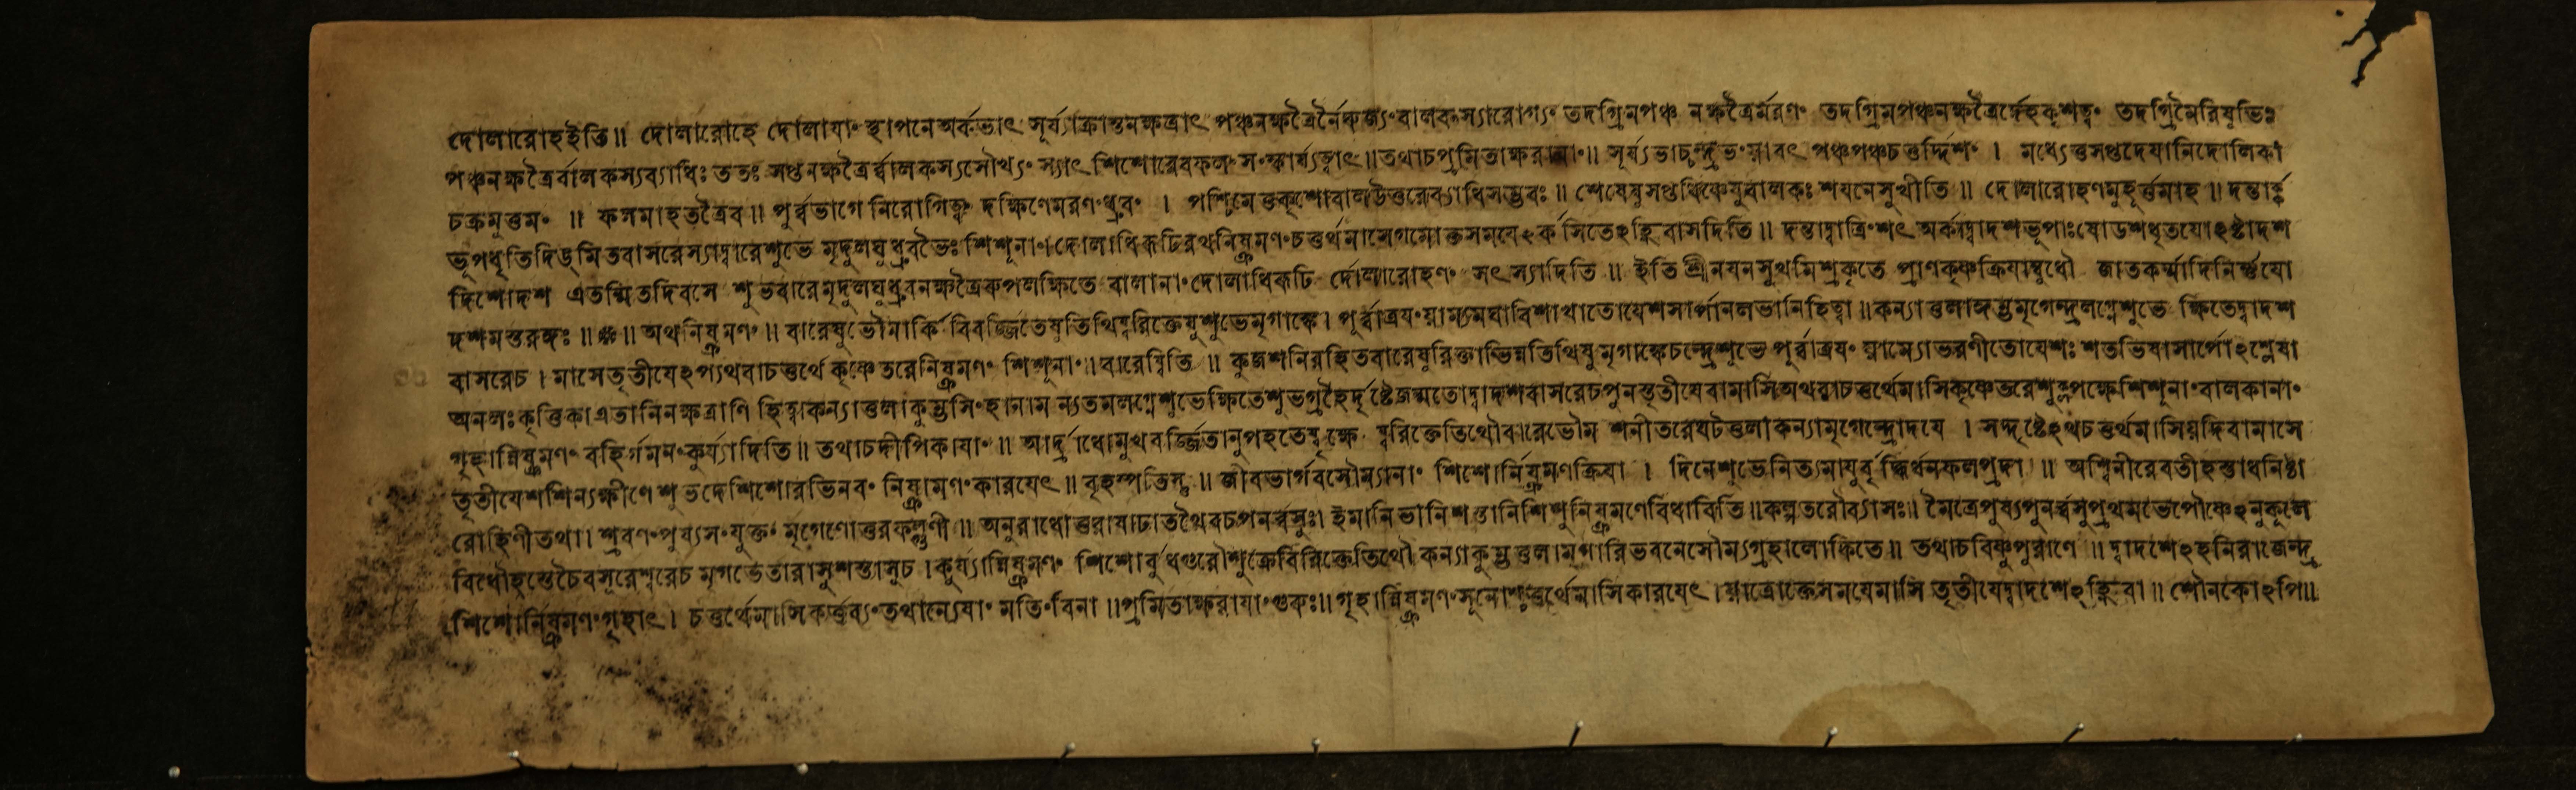 দোলারোহইতি॥ দোলারোহে দোলাযাং স্থাপনে অর্কভাৎ সূর্য্যাক্রান্তনক্ষত্রাৎ পঞ্চনক্ষত্রৈর্নৈরুজ্যং বালকস্যারোগ্যং তদগ্রিমপঞ্চ নক্ষত্রৈর্মরণং তদগ্রিমপঞ্চনক্ষত্রৈর্দ্দেহকৃশত্বং তদগ্রিমৈরিষুভিঃ
পঞ্চনক্ষত্রৈর্বালকস্যব্যাধিঃ ততঃ সপ্তনক্ষত্রৈর্ব্বালকস্যসৌখ্যং স্যাৎ শিশোরেবফলং সংস্কার্য্যত্বাৎ॥তথাচপ্রমিতাক্ষরায়াং॥ সূর্য্যভাচ্চন্দ্রভং যাবৎ পঞ্চপঞ্চচতুর্দ্দিশং । মধ্যেতুসপ্তদেযানিদোলিকা
চক্রমুত্তমং ॥ ফলমাহতত্রৈব॥ পূর্ব্বভাগে নিরোগিত্বং দক্ষিণেমরণংধ্রুবং । পশ্চিমেতুকৃশোবালউত্তরেব্যাধিসম্ভবঃ॥ শেষেষুসপ্তধিষ্ণেযুবালকঃ শযনেসুখীতি॥ দোলারোহণমুহূর্ত্তমাহ॥ দন্তার্ক
ভূপধৃতিদিঙ্মিতবাসরেস্যাদ্বারেশুভে মৃদুলঘুধ্রুবভৈঃ শিশূনাং।দোলাধিরূঢিরথনিষ্ক্রমণংচতুর্থমাসেগমোক্তসমযেঽর্কসিতেঽহ্নিবাসদিতি॥ দন্তাদ্বাত্রিংশৎ অর্কাদ্বাদশভূপাঃষোডশধৃতযোঽষ্টাদশ
দিশোদশ এতন্মিতদিবসে শুভবারেমৃদুলঘুধ্রুবনক্ষত্রৈরুপলক্ষিতে বালানাংদোলাধিরূঢি র্দোলারোহণং সৎ স্যাদিতি॥ ইতি শ্রীনযনসুখমিশ্রকৃতে প্রাণকৃষ্ণক্রিযাম্বুধৌ জাতকর্ম্মাদিনির্ণযো
দশমস্তরঙ্গঃ॥ ॥ অথনিষ্ক্রমণং॥ বারেষুভৌমার্কি বিবর্জ্জিতেষুতিথিষ্বরিক্তেষুশুভেমৃগাঙ্কে। পূর্ব্বাত্রযং যাম্যমঘাবিশাখাতোযেশসার্পানলভানিহিত্বা॥কন্যাতুলাকুম্ভমৃগেন্দ্রলগ্নেশুভে ক্ষিতেদ্বাদশ
বাসরেচ। মাসেতৃতীযেঽপ্যথবাচতুর্থে কৃষ্ণেতরেনিষ্ক্রমণং শিশূনাং॥বারেষ্বিতি॥ কুজশনিরহিতবারেষুরিক্তাভিন্নতিথিষুমৃগাঙ্কেচন্দ্রেশুভে পূর্ব্বাত্রযং যাম্যোভরণীতোযেশঃ শতভিষাসার্পোঽশ্লেষা
অনলঃকৃত্তিকাএতানিনক্ষত্রাণি হিত্বাকন্যাতুলাকুম্ভসিংহানাম ন্যতমলগ্নেশুভেক্ষিতেশুভগ্রহৈর্দৃষ্টেজন্মতোদ্বাদশবাসরেচপুনস্তৃতীযেবামাসিঅথবাচতুর্থেমাসিকৃষ্ণেতরেশুক্লপক্ষেশিশূনাংবালকানাং
গৃহান্নিষ্ক্রমণং বহির্গমনংকুর্য্যাদিতি॥ তথাচদীপিকাযাং॥ আর্দ্রাধোমুখবর্জ্জিতানুপহতেষ্বৃক্ষে ষ্বরিক্তেতিথৌবারেভৌম শনীতরেঘটতুলাকন্যামৃগেন্দ্রোদযে । সদ্দৃষ্টেঽথচতুর্থমাসিযদিবামাসে
তৃতীযেশশিন্যক্ষীণেশুভদেশিশোরভিনবং নিষ্ক্রামণংকারযেৎ॥ বৃহস্পতিস্তু॥ জীবভার্গবসৌম্যানাং শিশোর্নিষ্ক্রমণক্রিযা । দিনেশুভেনিত্যমাযুর্বৃদ্ধির্ধনফলপ্রদা॥ অশ্বিনীরেবতীহস্তাধনিষ্ঠা
রোহিণীতথা। শ্রবণংপুষ্যসংযুক্তং মৃগেণোত্তরফল্গুণী॥ অনুরাধোত্তরাষাঢাতথৈবচপুনর্ব্বসুঃ। ইমানিভানিশস্তানিশিশুনিষ্ক্রমণেবিধাবিতি॥কল্পতরৌব্যাসঃ॥ মৈত্রেপুষ্যপুনর্ব্বসুপ্রথমভেপৌষ্ণেঽনুকূলে
বিধৌহস্তেচৈবসুরেশ্বরেচ মৃগভেতারাসুশস্তাসুচ।কুর্য্যান্নিষ্ক্রমণং শিশোর্বুধগুরৌশুক্রেবিরিক্তেতিথৌ কন্যাকুম্ভতুলামৃগারিভবনেসৌম্যগ্রহালোকিতে॥ তথাচবিষ্ণুপুরাণে॥ দ্বাদশেঽহনিরাজেন্দ্র
শিশোর্নিষ্ক্রমণংগৃহাৎ। চতুর্থেমাসিকর্ত্তব্যংতথান্যেষাং মতিংবিনা॥প্রমিতাক্ষরাযাংগুরুঃ॥গৃহান্নিষ্ক্রমণংসূনোশ্চতুর্থেমাসিকারযেৎ।যাত্রোক্তেসমযেমাসি তৃতীযেদ্বাদশেঽহ্নিবা॥ শৌনকোঽপি॥